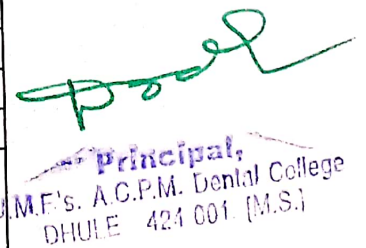 Principal,
.M.F's. A.C.P.M. Dental College
DHULE 424 001. [M.S.]